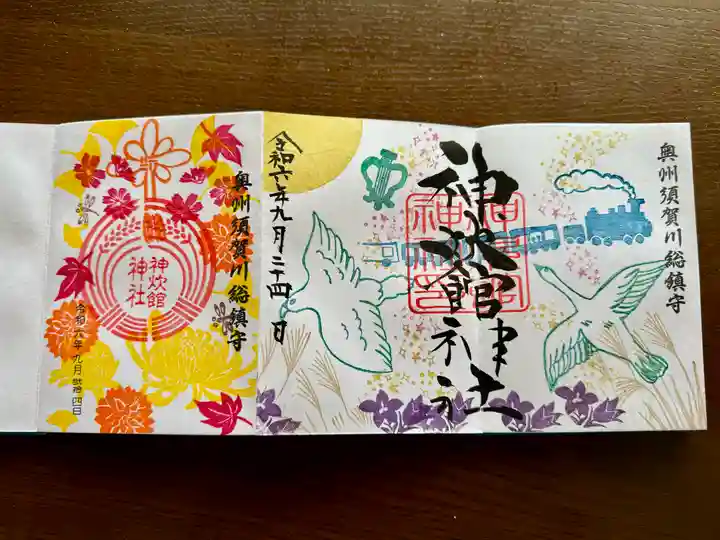 奥州須賀川総鎮守
神炊館神社
令和六年九月二十四日
奥州須賀川総鎮守
神炊館
神社
令和六年 九月 弐拾四日